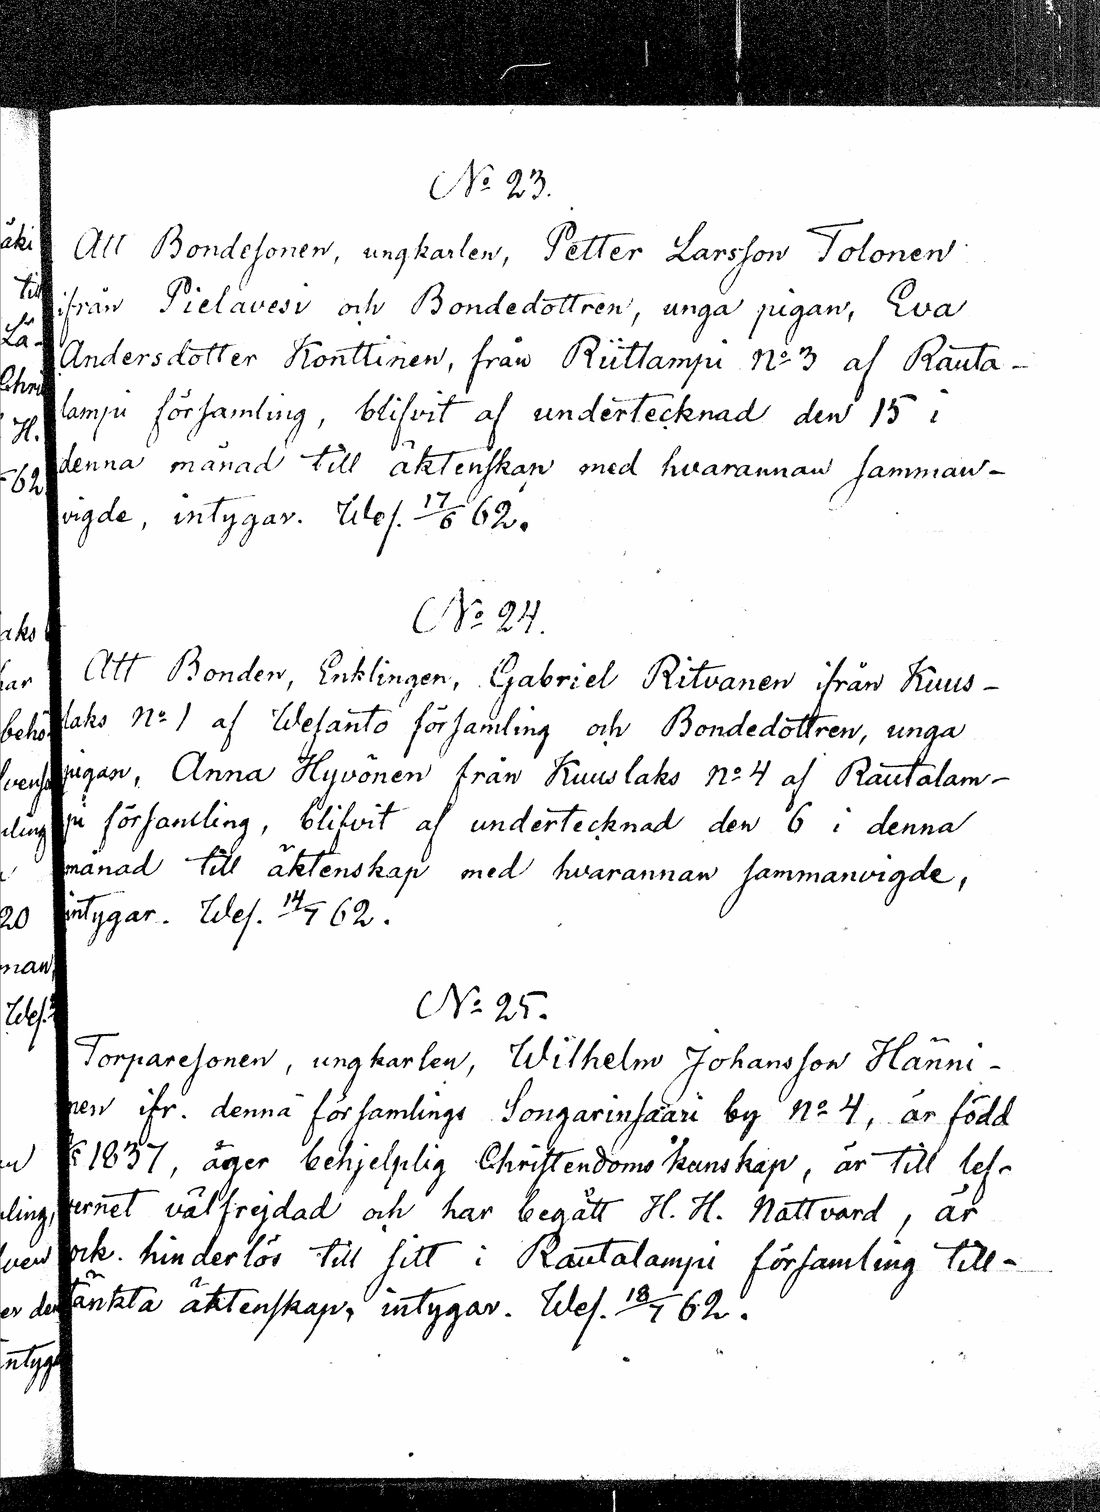 No 23.
Att Bondesonen, ungkarlen, Petter Larsson Tolonen
ifrån Pielavesi och Bondedottren, unga pigan, Eva
Andersdotter Konttinen, från Riitlampi No 3 af Rauta-
lampi församling, blifvit af undertecknad den 15 i
denna månad till äktenskap med hvarannan samman-
vigde, intygar. Wes. 17/6 62.
No 24.
Att Bonden, Enklingen, Gabriel Ritvanen ifrån Kuus-
laks No 1 af Wesanto församling och Bondedottren, unga
pigan, Anna Hyvönen från Kuuslaks No 4 af Rautalam-
pi församling, blifvit af undertecknad den 6 i denna
månad till äktenskap med hvarannan sammanvigde,
intygar. Wes. 14/7 62.
No 25.
Torparesonen, ungkarlen, Wilhelm Johansson Hänni-
nen ifr. denna församlings Songarinsaari by No 4, är född
1837, äger behjelplig Christendoms kunskap, är till lef-
vernet välfrejdad och har begått H. H. Nattvard, är
ock. hinderlös till sitt i Rautalampi församling till-
tänkta äktenskap, intygar. Wes. 18/7 62.